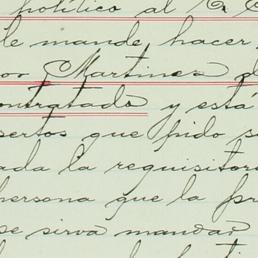 político al C. C
le mande hacer,
or Martines d
ontratado y está
sertos que pido s
ada la requisitori
persona que la pr
se sirva mandar